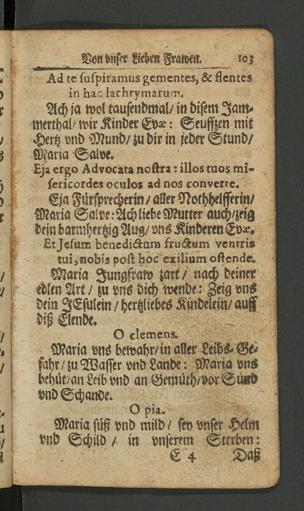 Von vnser Lieben Frawen. 103
Ad te suspiramus gementes, & flentes
in hac lachrymarum.
Ach ja wol tausendmal/ in disem Jam-
merthal/ wir Kinder Evæ: Seufftzen mit
Hertz vnd Mund/ zu dir in jeder Stund/
Maria Salve.
Eja ergo Advocata nostra: illos tuos mi-
sericordes oculos ad nos converte.
Eja Fürsprecherin/ aller Nothhelfferin/
Maria Salve: Ach liebe Mutter auch/ zeig
dein barmhertzig Aug/ vns Kinderen Evæ.
Et Jesum benedictum fructum ventris
tui, nobis post hoc exilium ostende.
Maria Jungfraw zart/ nach deiner
edlen Art/ zu vns dich wende: Zeig vns
dein JEsulein/ hertzliebes Kindelein/ auff
diß Elende.
O clemens.
Maria vns bewahr/ in aller Leibs-Ge-
fahr/ zu Wasser vnd Lande: Maria vns
behüt/ an Leib vnd an Gemüth/ vor Sünd
vnd Schande.
O pia.
Maria süß vnd mild/ sey vnser Helm
vnd Schild/ in vnserem Sterben:
E 4 Daß